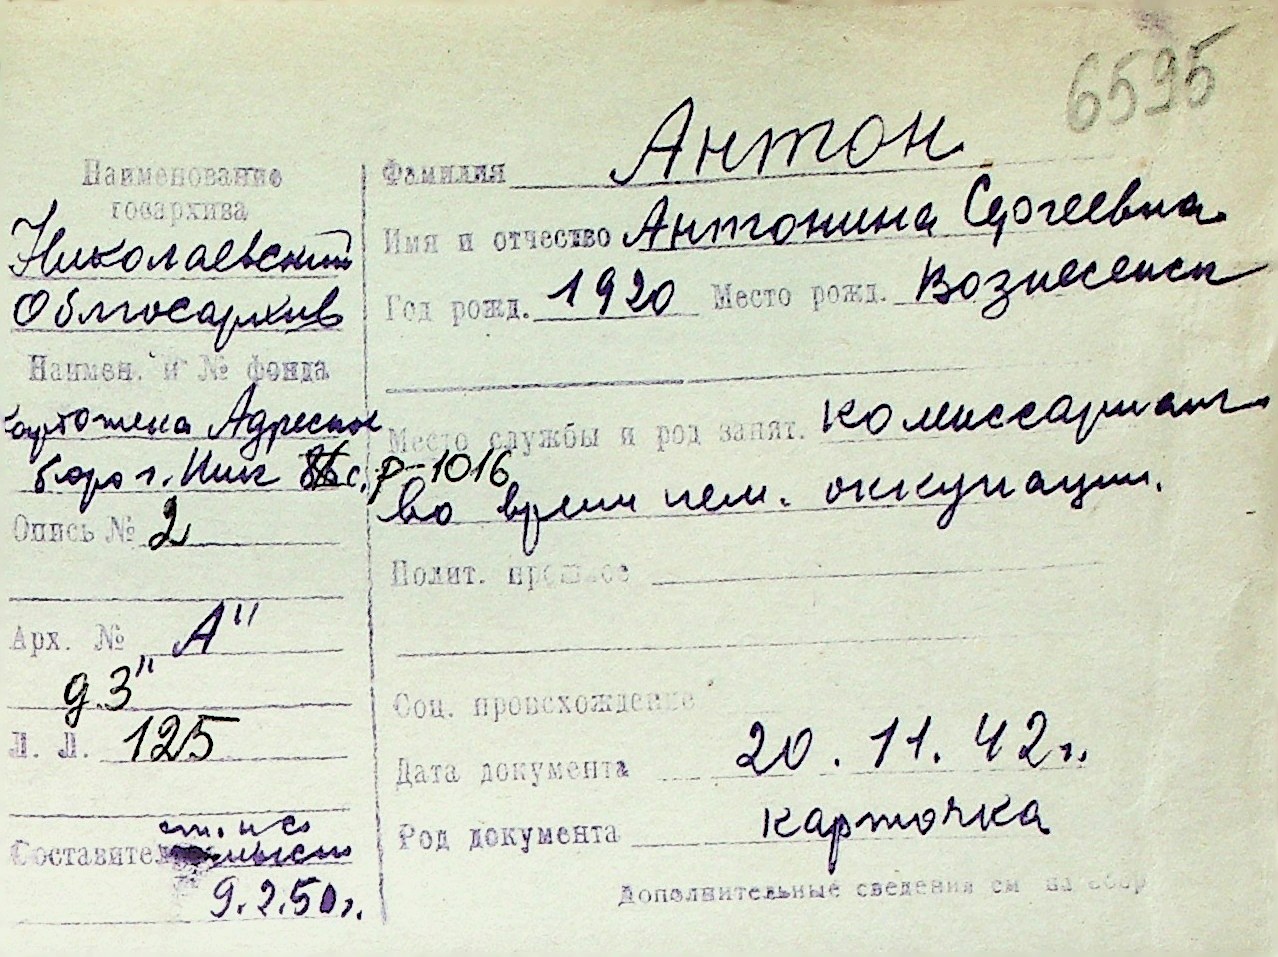 6595
Наименование
госархива
Николаевский
Облгосархив
Наимен. и № фонда
картотека Адресное
бюро г. Ник с. р-1016
Опись № 2
Арх. № А"
д.3"
Л. Л. 125
Составитель
9.2.50г.
Фамилия Антон
Имя и отчество Антонина Сергеевна
Год рожд. 1920 Место рожд. Вознесенск
Место службы и род занят. комиссариат
во время нем. оккупации.
Полит. прошлое
Соц. происхождение
Дата документа 20.11.42г.
Род документа карточка
Дополнительные сведения см на обор